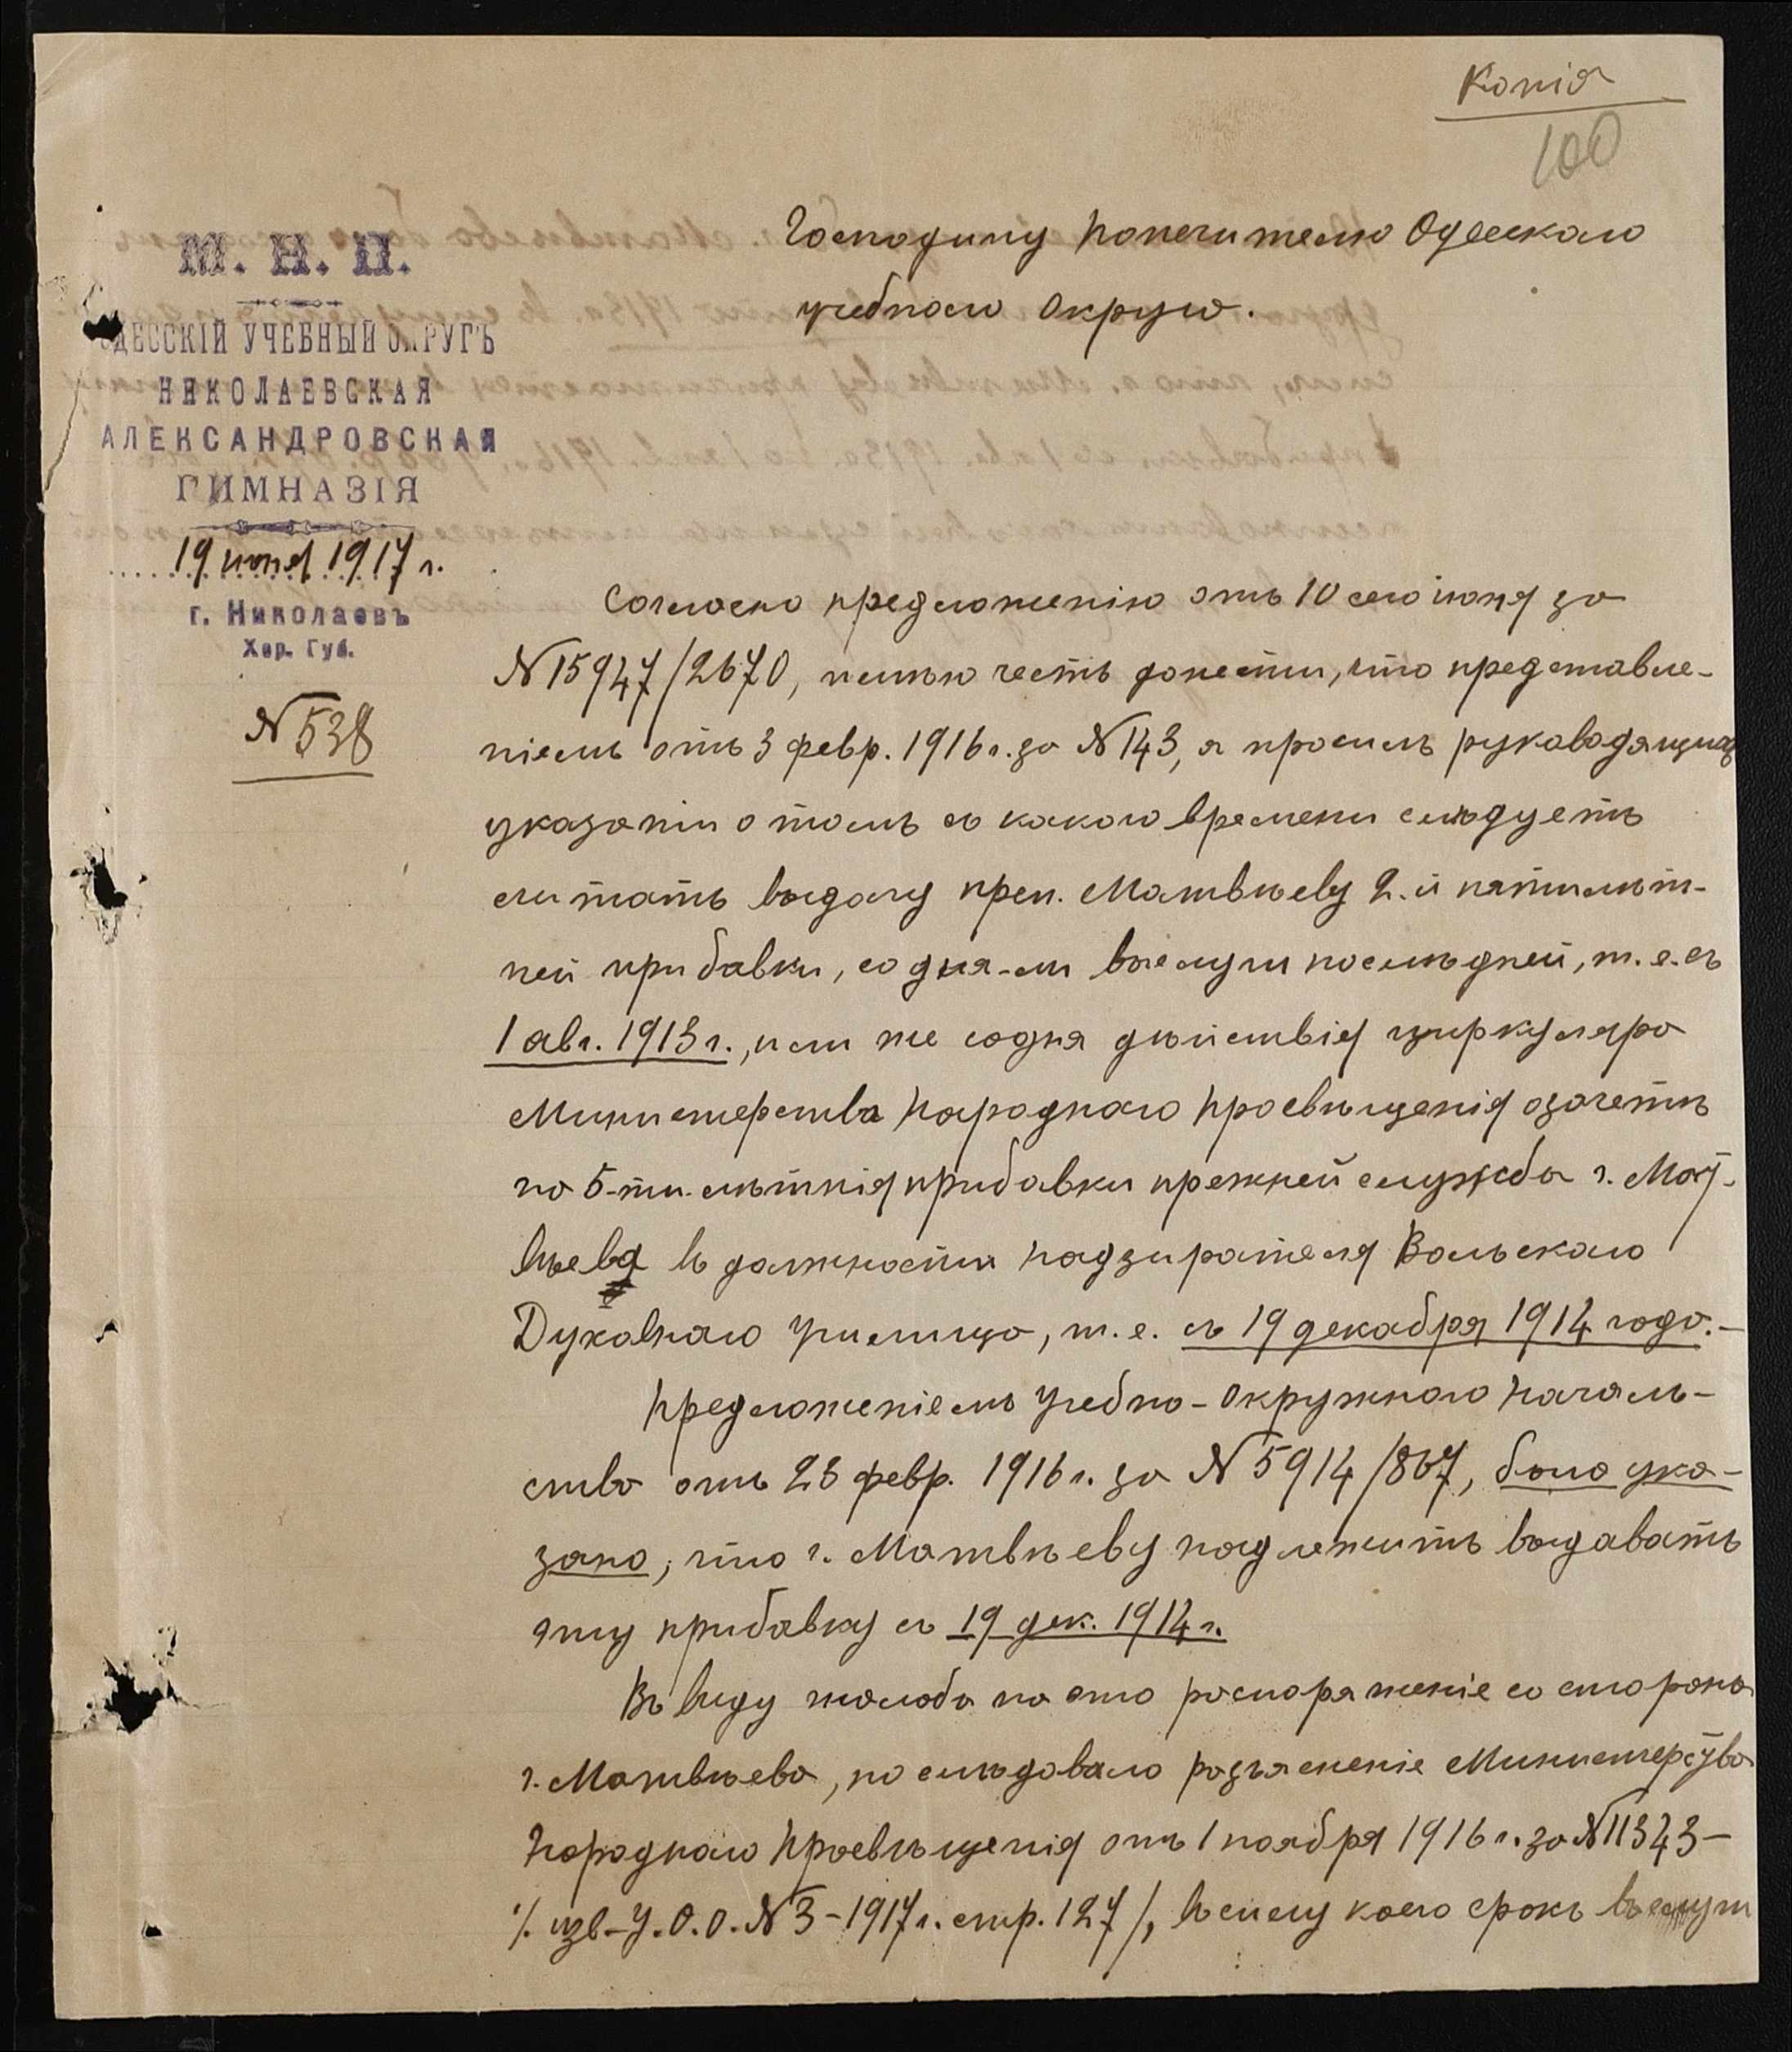 Копія
100
М. Н. П.
ОДЕССКІЙ УЧЕБНЫЙ ОКРУГЪ
НИКОЛАЕВСКАЯ
АЛЕКСАНДРОВСКАЯ
ГИМНАЗІЯ
19 іюня 1917 г.
г. Николаевъ
Хер. Губ.
№ 538
Господину Попечителю Одесскаго
учебнаго Округа.
Согласно предложенію отъ 10 сего іюня за
№ 15947/2670, имѣю честь донести, что представле-
ніемъ отъ 3 февр. 1916 г. за № 143, я просилъ руководящихъ
указаній о томъ съ какого времени слѣдуетъ
считать выдачу преп. Матвѣеву 2-й пятилѣт-
ней прибавки, со дня-ли выслуги послѣдней, т. е. съ
1 авг. 1913 г., или же со дня дѣйствія циркуляра
Министерства Народнаго Просвѣщенія о зачетѣ
на 5-ти лѣтнія прибавки прежней службы г. Мат-
вѣева въ должности надзирателя Вольскаго
Духовнаго училища, т. е. съ 19 декабря 1914 года.-
Предложеніемъ Учебно-Окружного Началь-
ства отъ 23 февр. 1916 г. за № 5914/867, было ука-
зано, что г. Матвѣеву надлежитъ выдавать
эту прибавку съ 19 дек. 1914 г.
Въ виду жалобы на это распоряженіе со стороны
г. Матвѣева, послѣдовало разъясненіе Министерства
Народнаго Просвѣщенія отъ 1 ноября 1916 г. за № 11343-
/. изв-У. О. О. № 3-1917 г. стр. 127/, въ силу коего срокъ выслуги